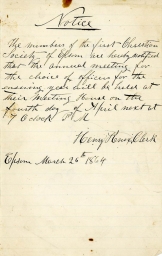 Notice
The members of the first Christian
Society of Epsom are hereby notified
that the annual meeting for
the choice of officers for the
ensuing year will be held at
their Meeting House on the
fourth day of April next at
7 O'clock P.M.
Henry Clerk
Epsom March 26th